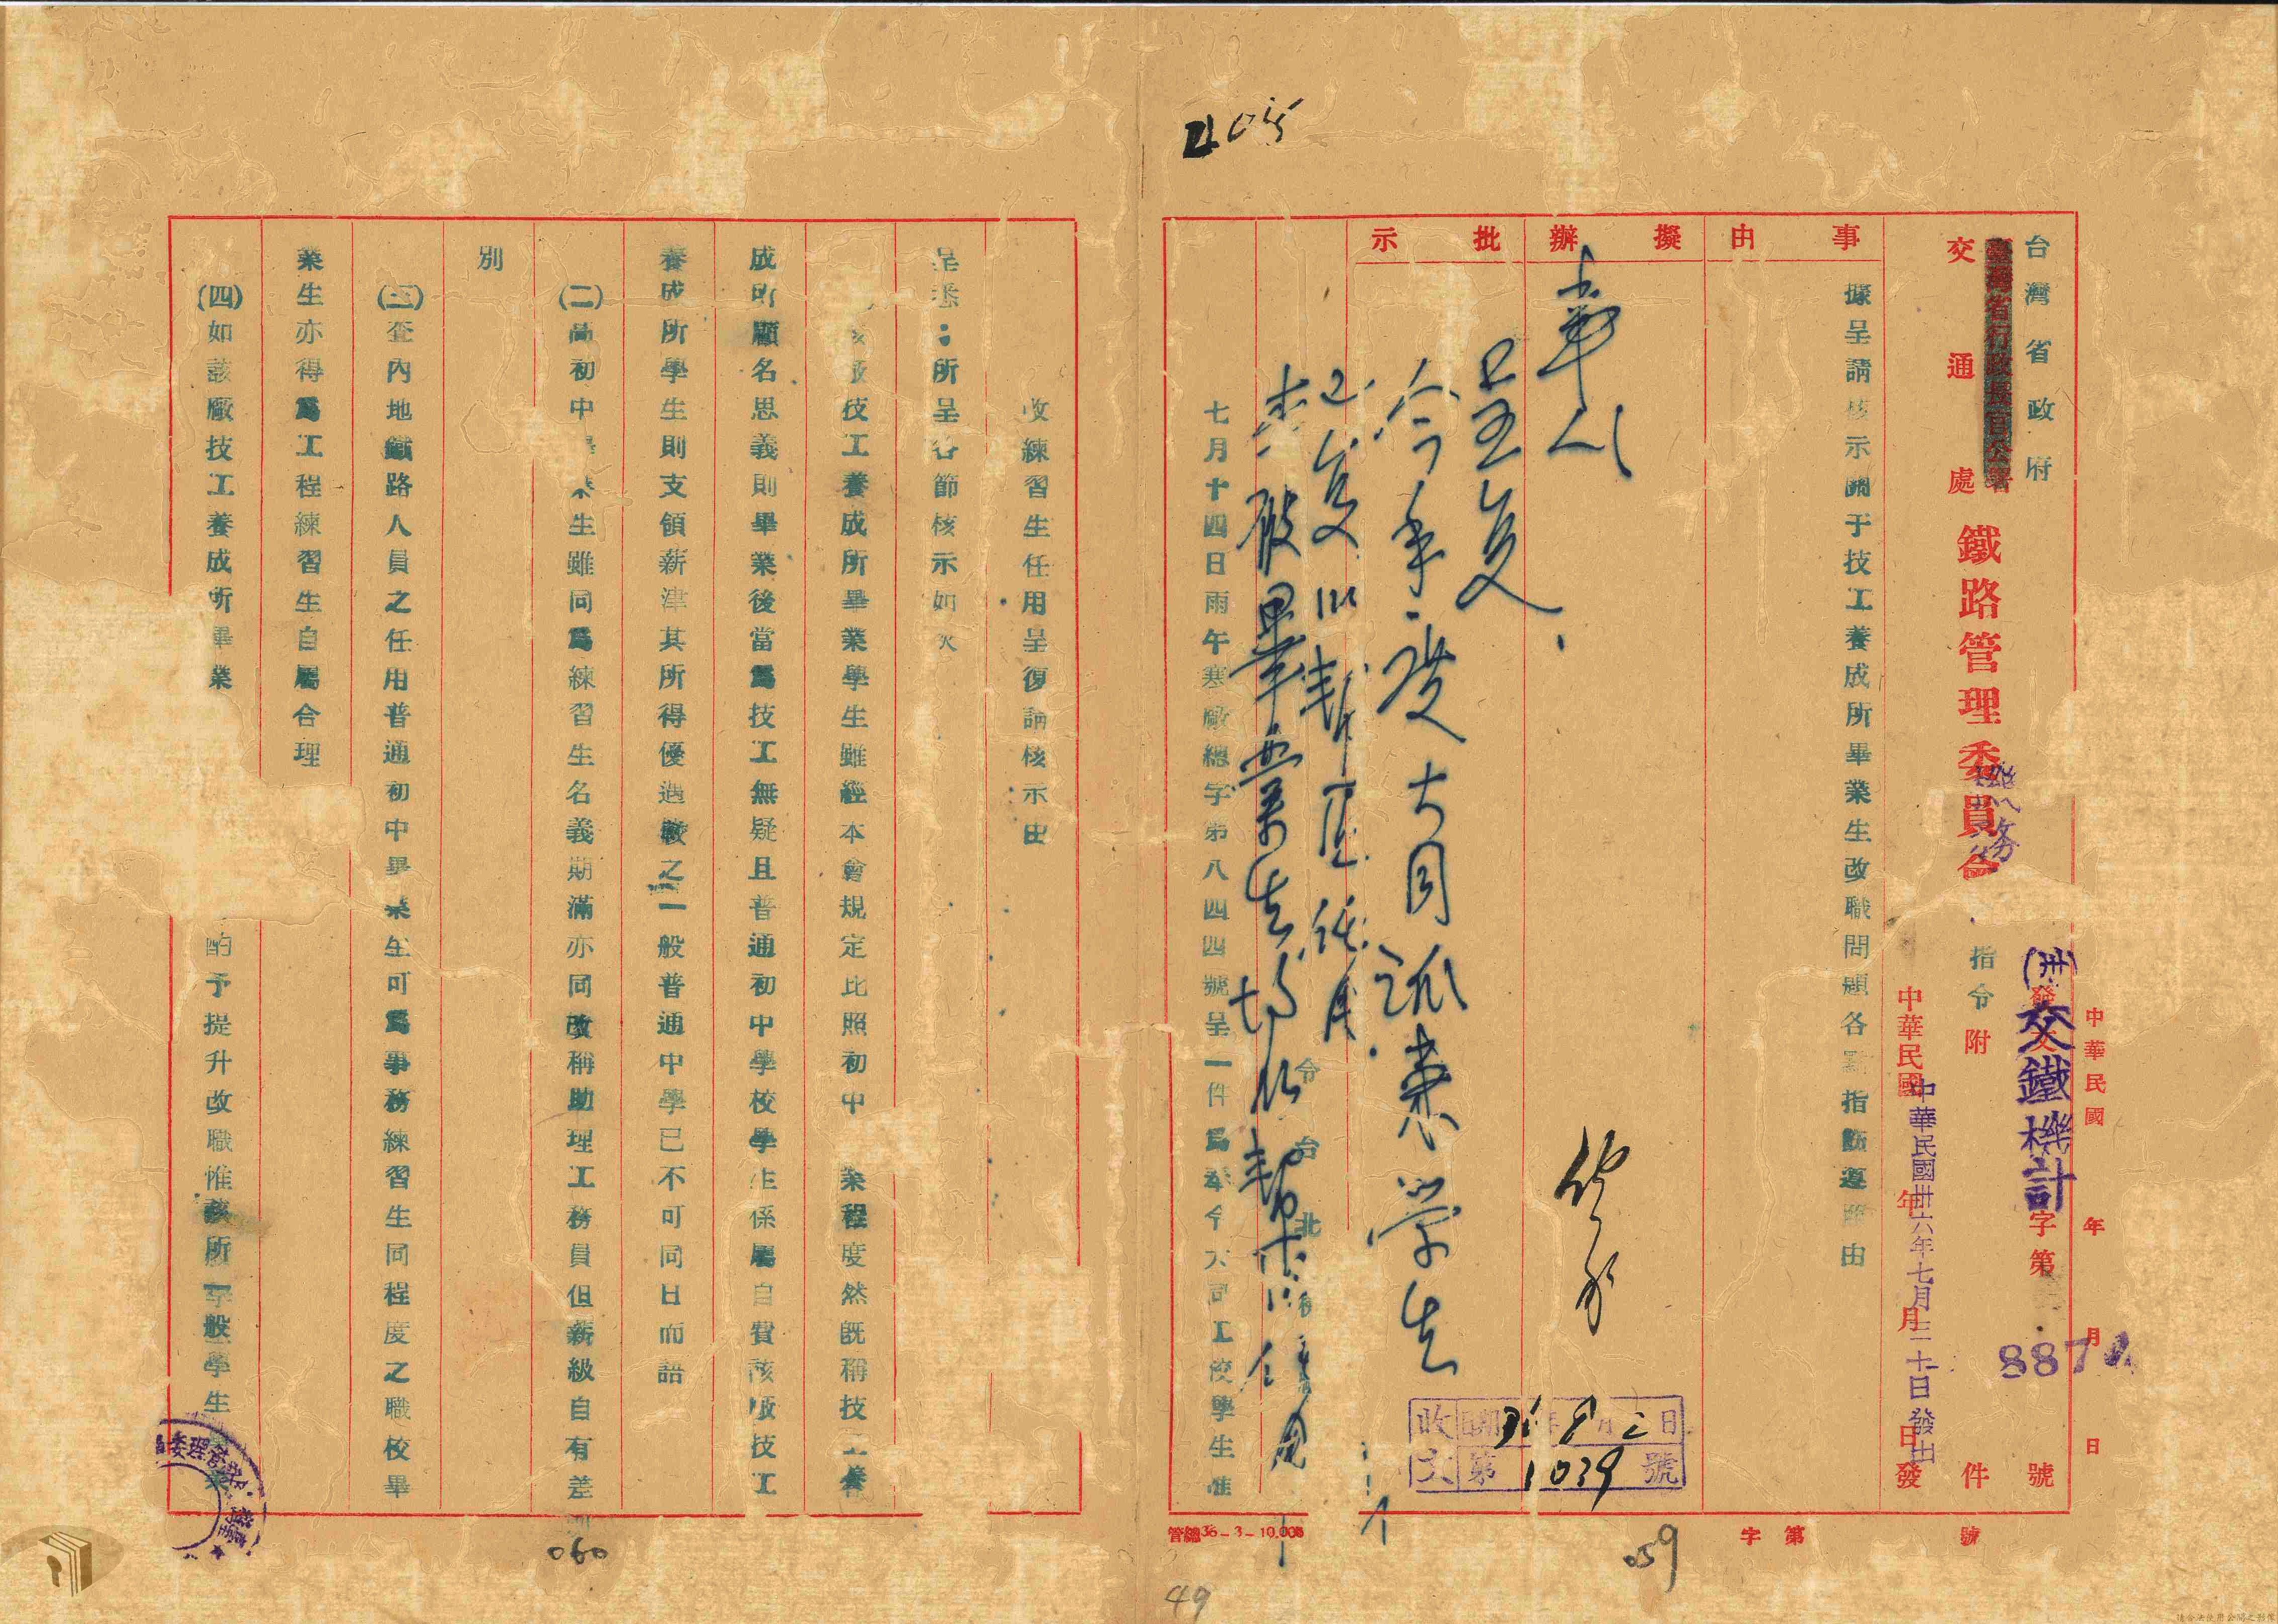 台灣省政府
交通處
鐵路管理委員會
指令
附件
中華民國 年 月 日
(卅)交鐵機計字第 887 號
中華民國 年 月 日發
中華民國卅六年七月三十一日發出
事由
擬辦
批示
據呈請核示關于技工養成所畢業生改職問題各點指飭遵照由
呈复
今年度大同派來学生
已复以幫工任用
本廠畢業生
收文 36年8月2日
第1039號
令台北
七月十四日雨午寒廠總字第八四四號呈一件為奉令大同工校學生准
收練習生任用呈復請核示由
呈悉：所呈各節核示如次
技工養成所畢業學生雖經本會規定比照初中 業程度然既稱技工養
成所顧名思義則畢業後當為技工無疑且普通初中學校學生係屬自費該項技工
養成所學生則支領薪津其所得優遇較之一般普通中學已不可同日而語
(二)高初中畢業生雖同為練習生名義期滿亦同改稱助理工務員但薪級自有差
別
(三)查內地鐵路人員之任用普通初中畢業生可為事務練習生同程度之職校畢
業生亦得為工程練習生自屬合理
(四)如該廠技工養成所畢業 酌予提升改職惟該所一般學生
管總36-3-10,000
字第 號
405
059
060
49